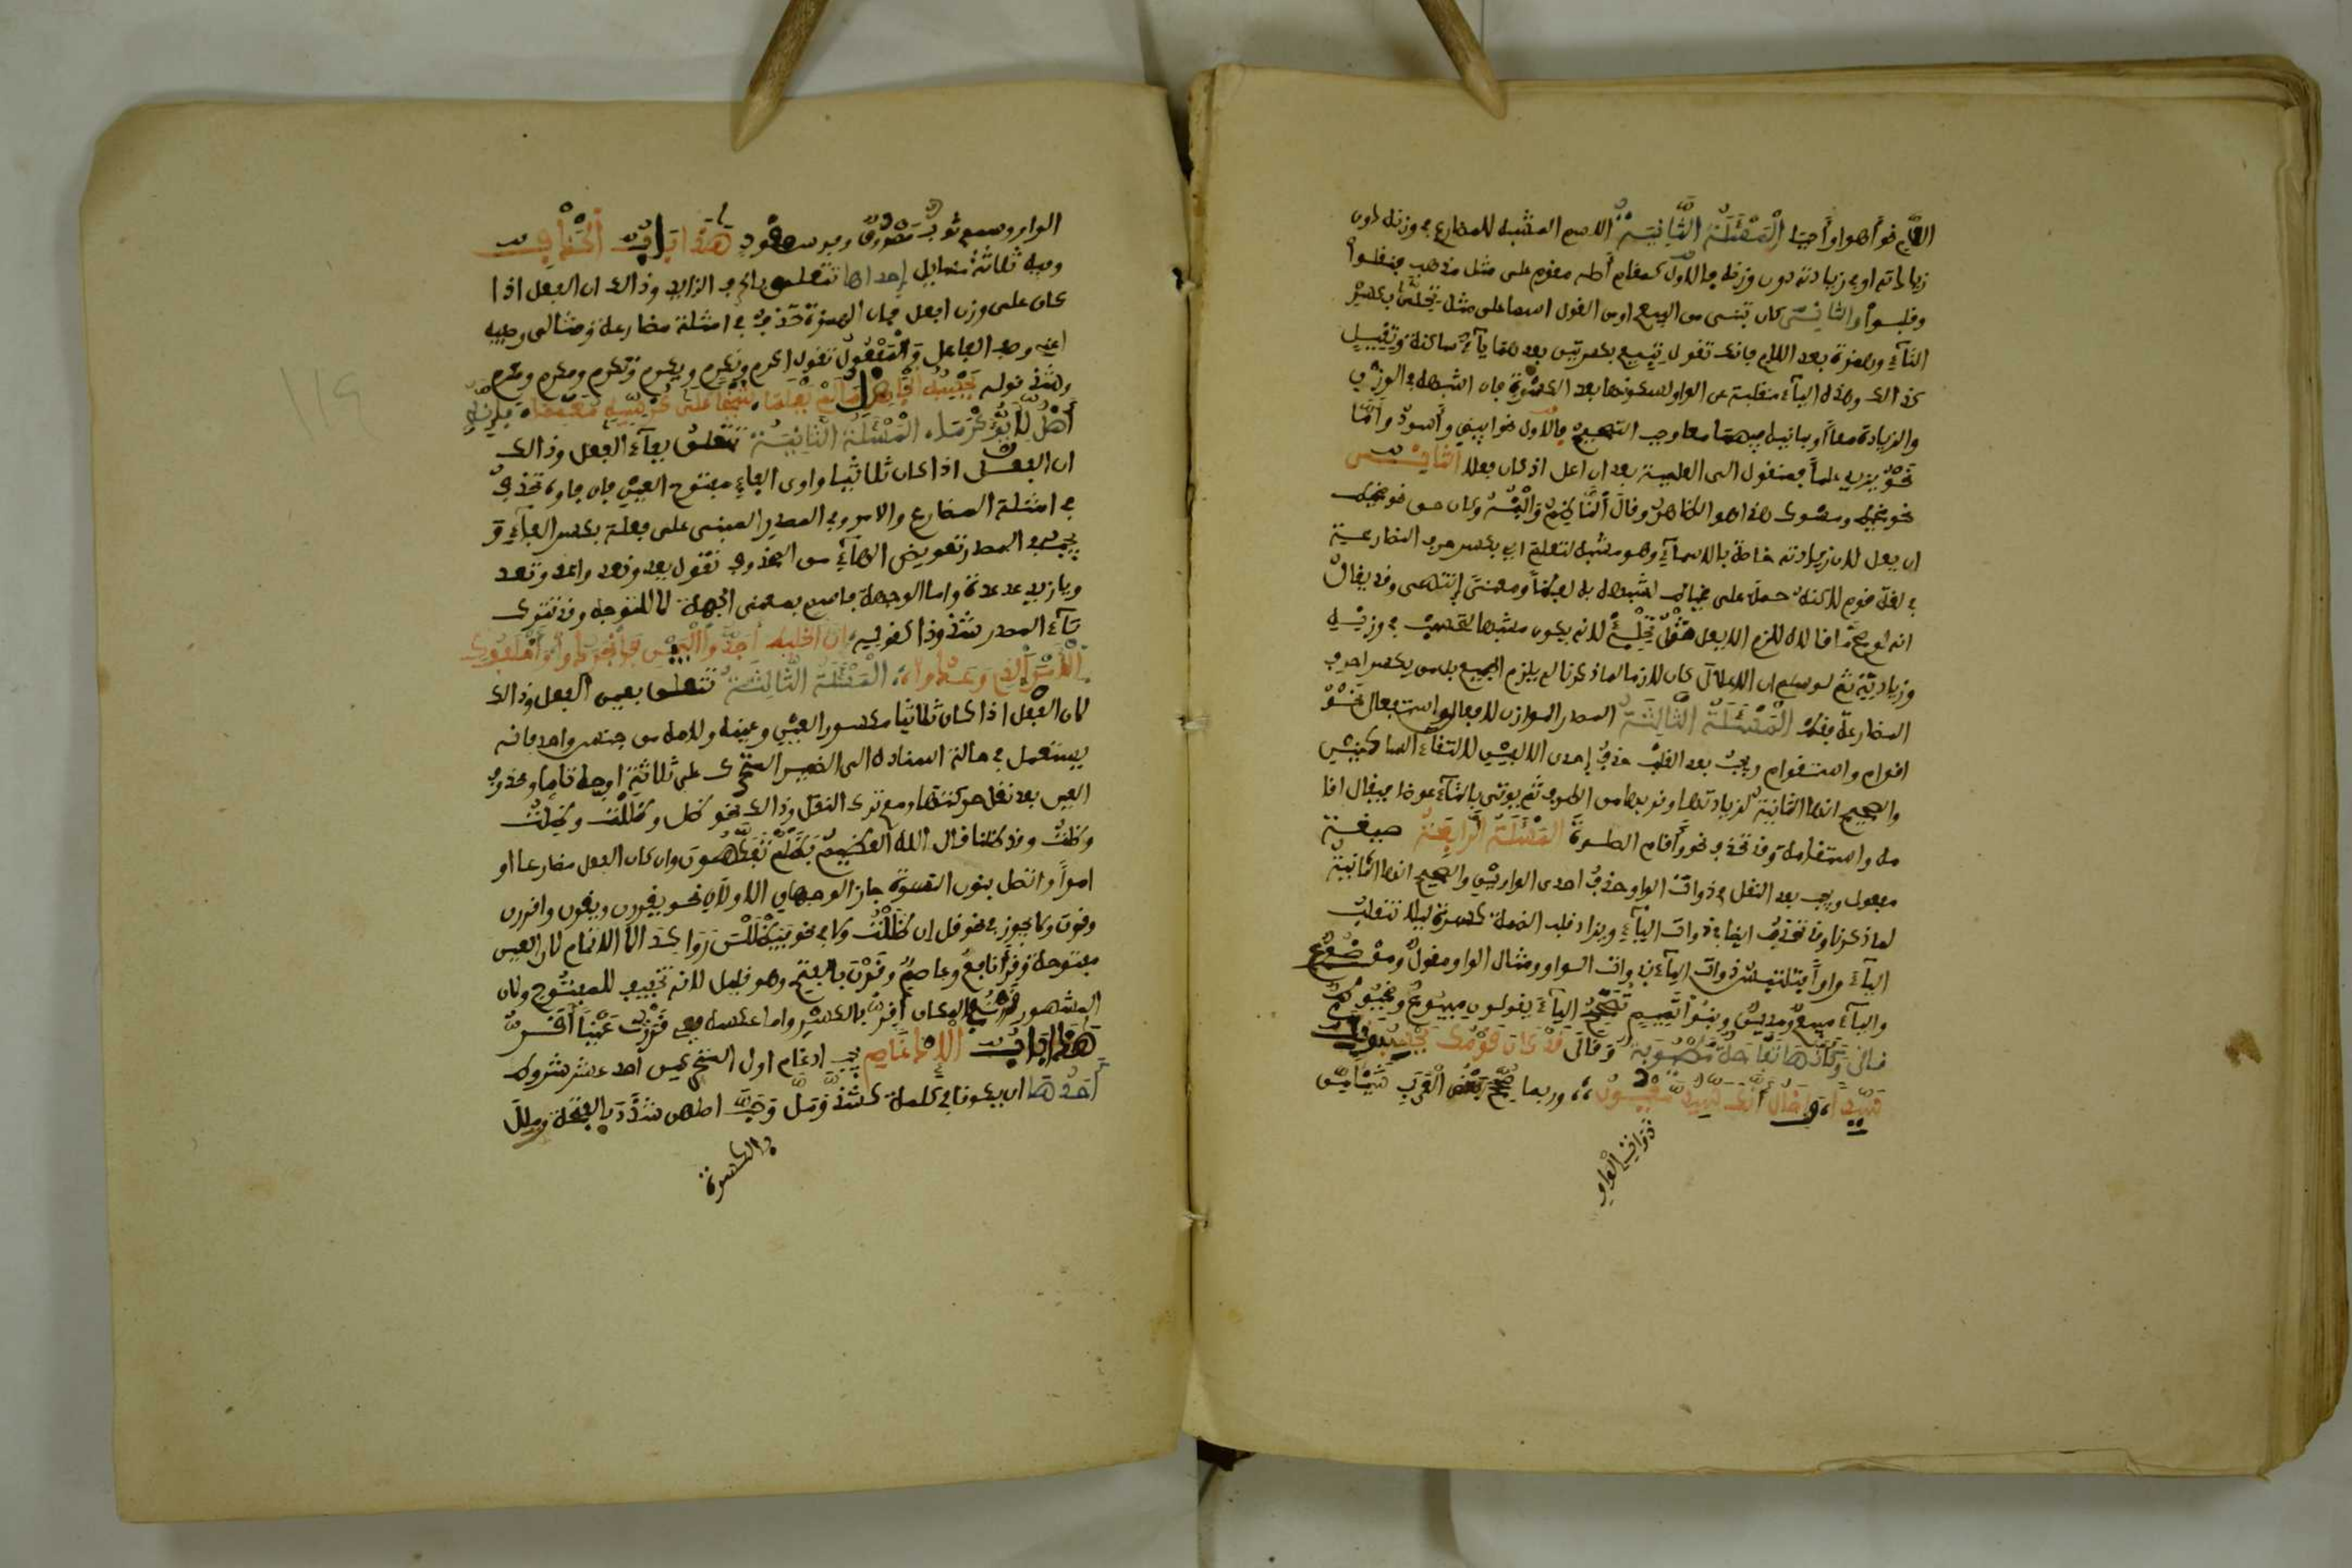 اللام نحو أهوى وأحيا المسئلة الثانية الاسم المشبه للمضارع في وزنه دون
زيادته او في زيادته دون وزنه فالاول كمقام أصله مقوم على مثل مذهب فنقلوا
وقلبوا والثاني كان تبنى من البيع او من القول اسما على مثل تحلئ بكسر
التاء وهمزة بعد اللام فانك تقول تبيع بكسرتين بعدهما ياء ساكنة وتقيل
كذالك وهذه الياء منقلبة عن الواو لسكونها بعد الكسرة فان اشبهه في الوزن
والزيادة معاً او باينه فيهما معا وجب التصحيح فالاول نحو ابيض وأسود وأما
نحو يزيد علماً فمنقول الى العلمية بعد ان اعل اذ كان فعلا الثاني
نحو مخيط هذا هو الظاهر وقال الناظم وابنه وكان حق نحو مخيط
ان يعل لان زيادته خاصة بالاسماء وهو مشبه لتعلم اي بكسر حرف المضارعة
في لغة قوم لاكنه حمل على مخياط لشبهه به لفظاً ومعنى انتهى وقد يقال
انه لو صح ما قالا للزم الا يعل مثل تحلئ لانه يكون مشبها لتحسب في وزنه
وزيادته ثم لو سلم ان الاعلال كان لازما لما ذكرنا لم يلزم الجميع بل من يكسر احرف
المضارعة فقط المسئلة الثالثة المصدر الموازن للافعال واستفعال نحو
اقوام واستقوام ويجب بعد القلب حذف إحدى الالفين لالتقاء الساكنين
والصحيح انها الثانية لزيادتها وقربها من الطرف ثم يوتى بالتاء عوضا فيقال اقا
مة واستقامة وقد تحذف نحو وأقام الصلوة المسئلة الرابعة صيغة
مفعول ويجب بعد النقل في ذوات الواو حذف احدى الواوين والصحيح انها الثانية
لما ذكرنا وقد تحذف ايضا في ذوات الياء ويزاد قلب الضمة كسرة ليلا تنقلب
الياء واواً فيلتبس ذوات الياء بذوات الواو ومثال الواو مقول ومصوغ
والياء مبيع ومدين وبنوا تميم تصحح الياء فيقولون مبيوع ومخيوط
قال وكأنها تفاحة مطيوبة وقال قد كان قومك يحسبونك
سيدا، وإخال أنك سيد معيون،، وربما صحح بعض العرب شيئا من
ذوات الواو
الواو وسمع ثوب مصوون وفرس مقوود هذا باب الحذف
وفيه ثلاثة مسايل إحداها تتعلق بالحرف الزايد وذالك ان الفعل اذا
كان على وزن افعل فان الهمزة تحذف في امثلة مضارعه ومثالى وصفه
اعني وصف الفاعل والمفعول تقول اكرم ونكرم ويكرم وتكرم ومكرم ومكرم
وشذ قوله يحسبه الجاهل ما لم يعلما، شيخا على كرسيه معمما، فإنه
أهل لأن يؤكرما، المسئلة الثانية تتعلق بفاء الفعل وذالك
ان الفعل اذا كان ثلاثيا واوى الفاء مفتوح العين فان فاءه تحذف
في امثلة المضارع والامر وفي المصدر المبنى على فعلة بكسر الفاء و
يجب في المصدر تعويض الهاء من المحذوف تقول يعد ونعد واعد وتعد
ويا زيد عد عدة واما الوجهة فاسم بمعنى الجهة لا للتوجه وقد تترك
تاء المصدر شذوذا كقوله، إن الخليط أجدوا البين فانجردوا، وأخلفوك
الأمر الذي وعدوا، المسئلة الثالثة تتعلق بعين الفعل وذالك
لان الفعل اذا كان ثلاثيا مكسور العين وعينه ولامه من جنس واحد فانه
يستعمل في حالة اسناده الى الضمير المتحرك على ثلاثة اوجه تاما ومحذوف
العين بعد نقل حركتها ومع ترك النقل وذالك نحو ظل وظللت وظلت
وظلت وقد ظلنا قال الله العظيم فظلتم تفكهون وان كان الفعل مضارعا او
امراً واتصل بنون النسوة جاز الوجهان الاولان نحو يقررن ويقرن واقررن
وقرن ولا يجوز في نحو قل ان ظللت ولا في نحو فيظللن رواكد الا الاتمام لان العين
مفتوحة وقرأ نافع وعاصم وقرن بالفتح وهو قليل لانه تخفيف للمفتوح ولان
المشهور قررت في المكان أقر بالكسر واما عكسه ففي قررت عيناً أقر
هذا باب الإدغام يجب ادغام اول المثلين المتحركين باحد عشر شروط
أحدها ان يكونا في كلمة كشد ومل وحب اصلهن شدد بالفتح وملل
بالكسرة
١١٩